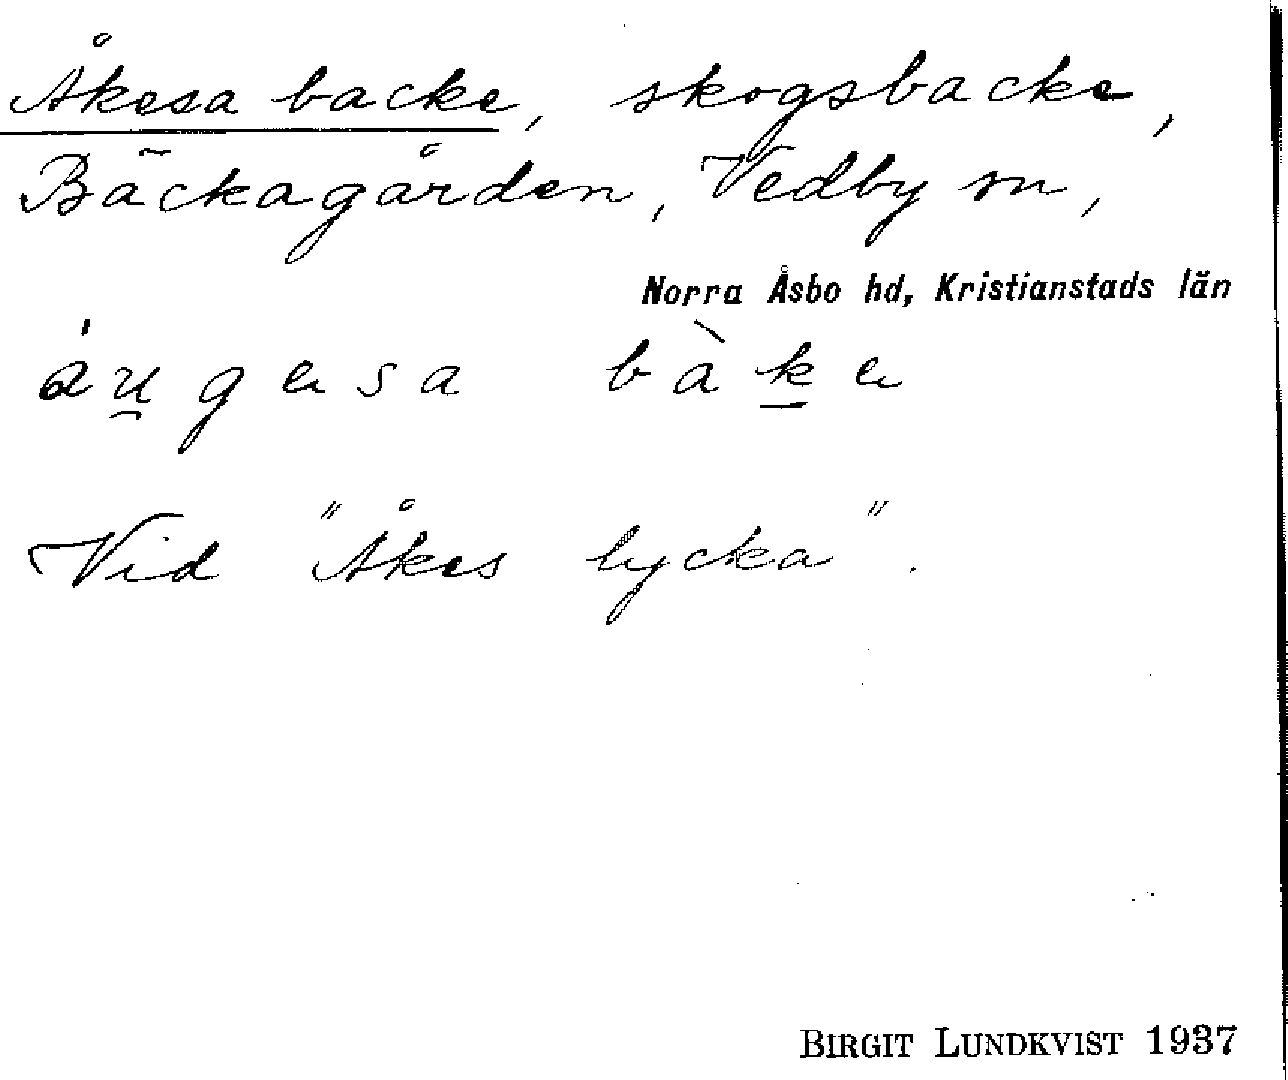 Åkesa backe, skogsbacke,
Bäckagården, Vedby sn,
Norra Åsbo hd, Kristianstads län
áu̯gesa bàk̲e
Vid "Åkes lycka".
BIRGIT LUNDKVIST 1937